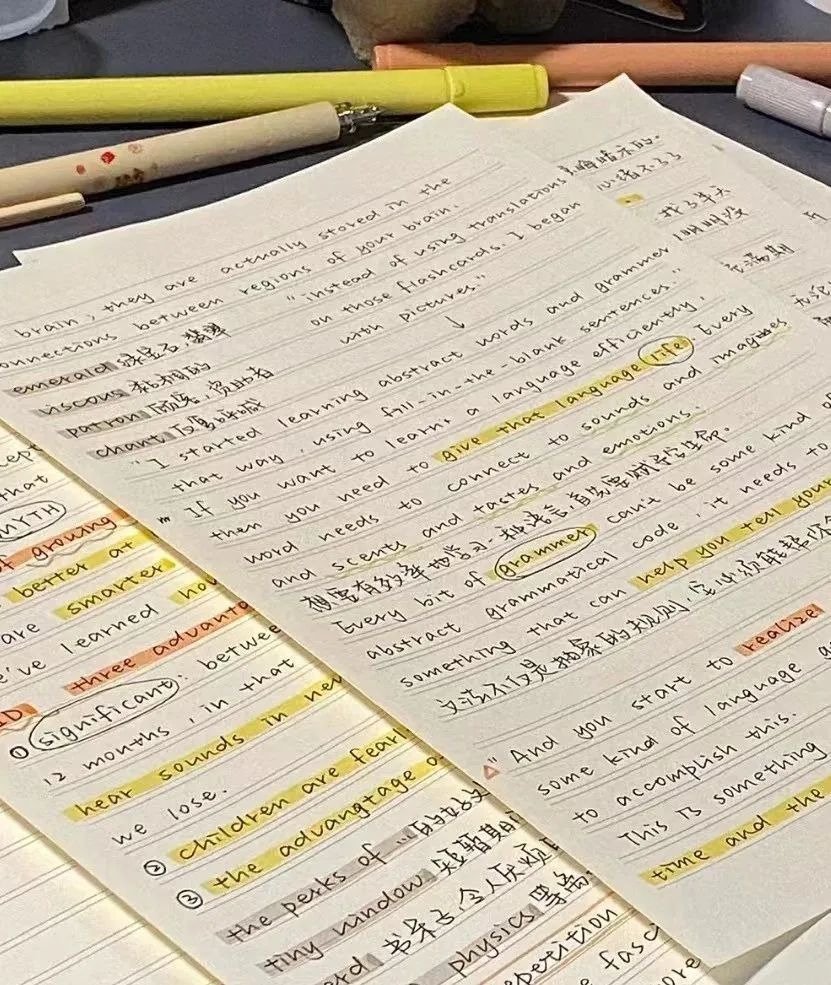 brain, they are actually stored in the
onnections between regions of your brain.
emerald 绿宝石, 翡翠
"instead of using translations
viscous 黏稠的
on those flashcards. I began
patron 顾客, 资助者
with pictures."
↓
chant
"I started learning abstract words and grammer
that way, using fill-in-the-blank sentences."
"If you want to learn a language efficiently,
then you need to give that language life. Every
word needs to connect to sounds and images
and scents and tastes and emotions.
想要有效率地学习一种语言,首先要赋予它生命。
Every bit of grammer can't be some kind
abstract grammatical code, it needs to
something that can help you tell your
文法不仅是抽象的规则, 它必须能帮
"And you start to realize
some kind of language
to accomplish this.
This is something
time and the
晦暗不明的.
心绪不
找了半天
明明没
that
MYTH
f growing
better at
are smarter
e've learned
three advanta
① significant: betwee
12 months, in that
hear sounds in new
we lose.
② children are fearl
③ the advangtage o
the perks of ...的好处
tiny window 短暂期
书呆子, 令人厌烦
physics
epetition
e fasc